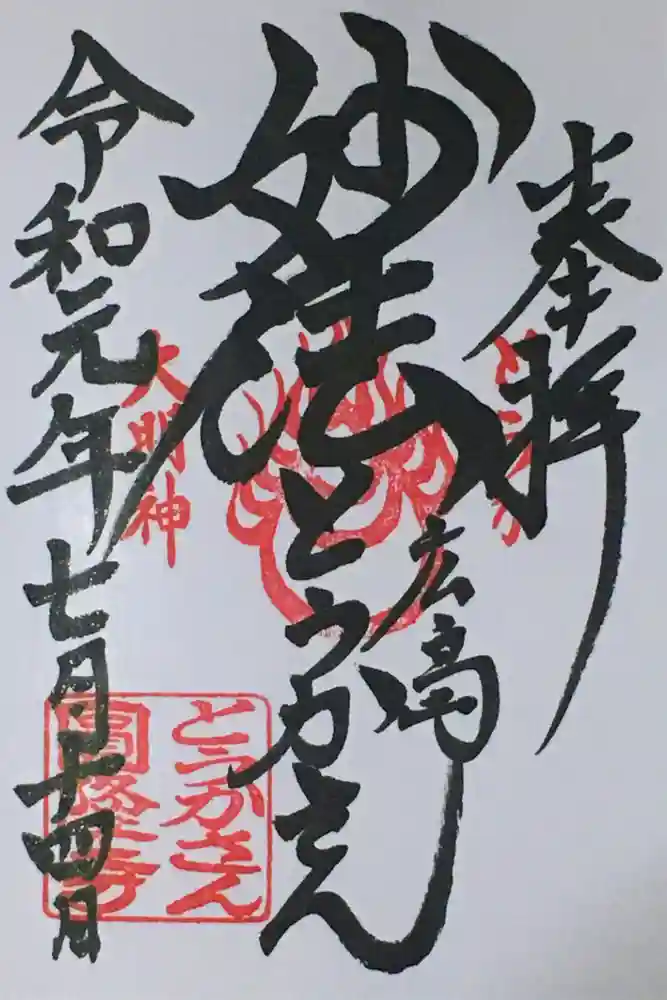 奉拝
とうか
妙法
とうかさん
広島
大明神
令和元年七月十四日
とうかさん
圓隆寺